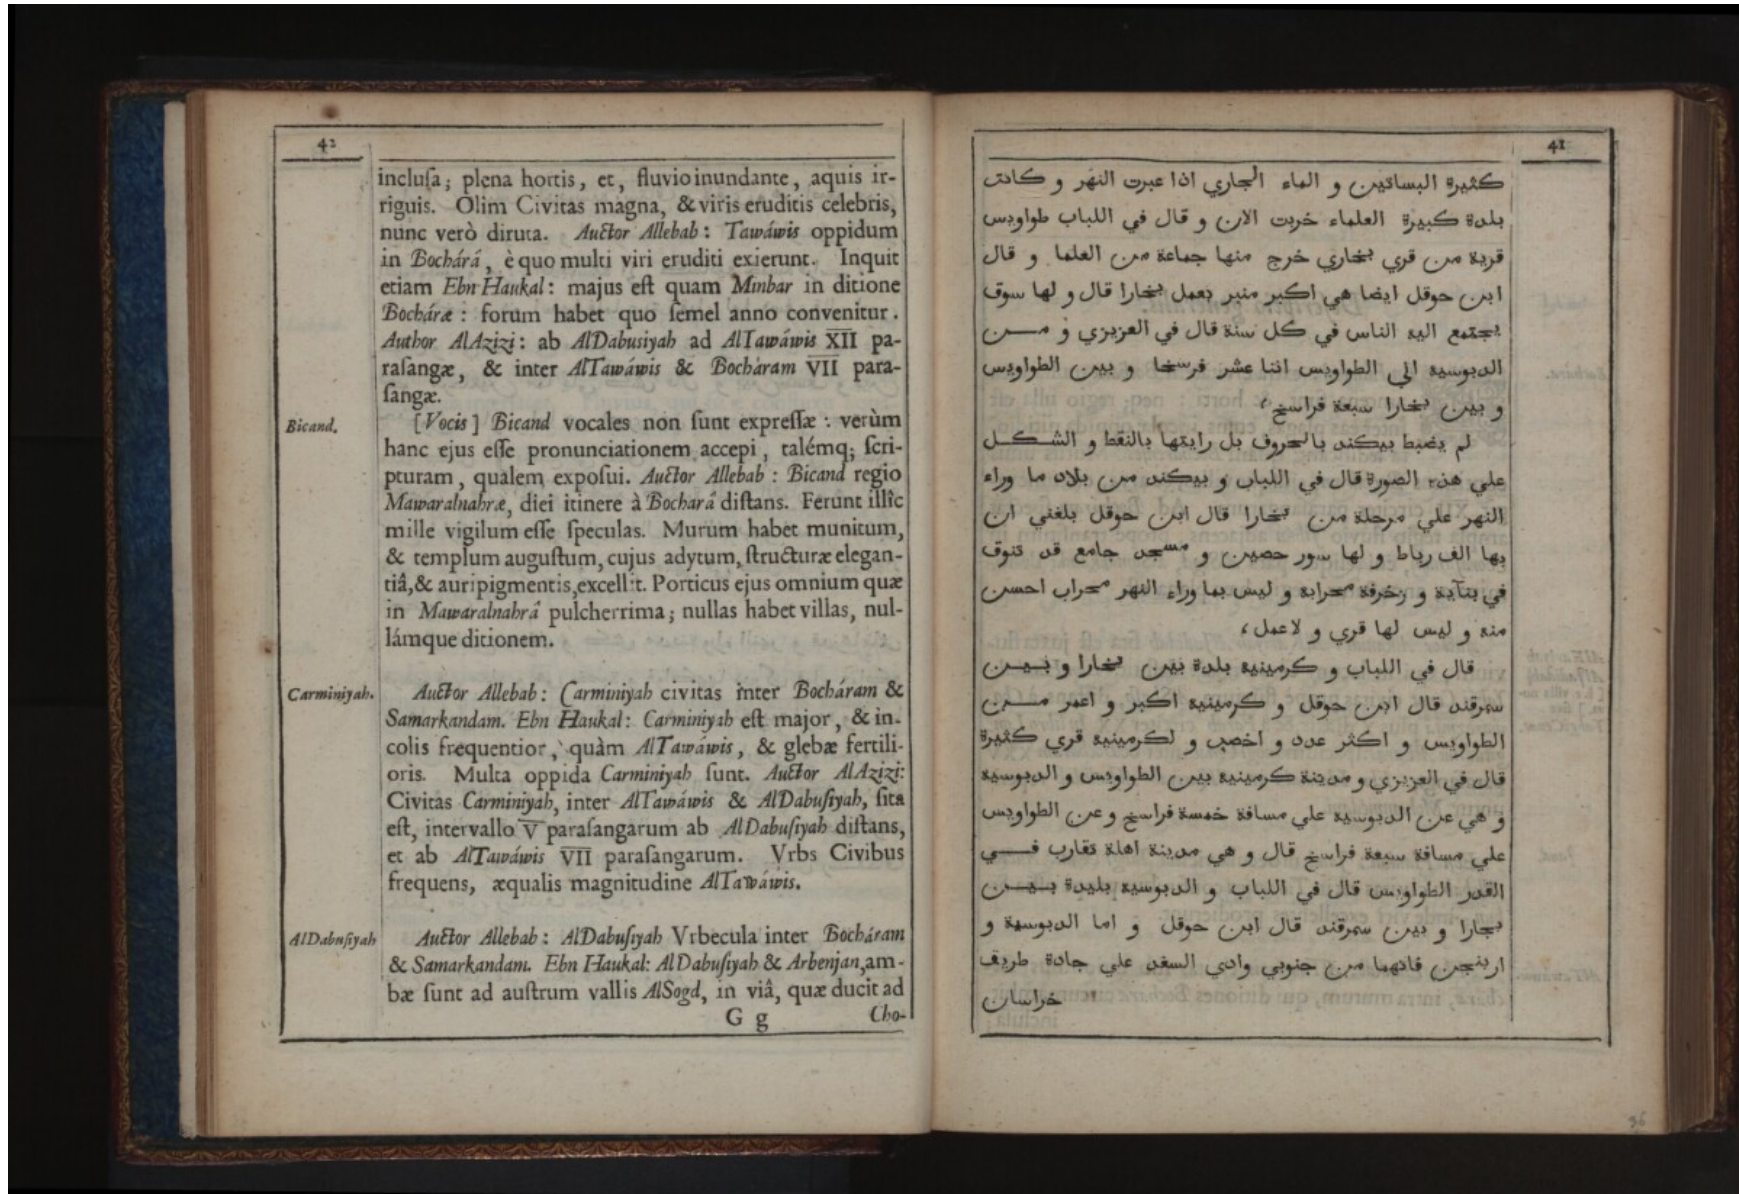 42
inclusa; plena hortis, et, fluvio inundante, aquis ir-
riguis. Olim Civitas magna, & viris eruditis celebris,
nunc verò diruta. Auctor Allebab: Tawáwis oppidum
in Bochárá, è quo multi viri eruditi exierunt. Inquit
etiam Ebn Haukal: majus est quam Minbar in ditione
Bocháræ: forum habet quo semel anno convenitur.
Author AlAzizi: ab AlDabusiyah ad AlTawáwis XII pa-
rasangæ, & inter AlTawáwis & Bocháram VII para-
sangæ.
Bicand.
[Vocis] Bicand vocales non sunt expressæ: verùm
hanc ejus esse pronunciationem accepi, talémq; scri-
pturam, qualem exposui. Auctor Allebab: Bicand regio
Mawaralnahræ, diei itinere à Bochará distans. Ferunt illîc
mille vigilum esse speculas. Murum habet munitum,
& templum augustum, cujus adytum, structuræ elegan-
tiâ, & auripigmentis, excellit. Porticus ejus omnium quæ
in Mawaralnahrâ pulcherrima; nullas habet villas, nul-
lámque ditionem.
Carminiyah.
Auctor Allebab: Carminiyah civitas inter Bocháram &
Samarkandam. Ebn Haukal: Carminiyah est major, & in-
colis frequentior, quàm AlTawáwis, & glebæ fertili-
oris. Multa oppida Carminiyah sunt. Auctor AlAzizi:
Civitas Carminiyah, inter AlTawáwis & AlDabusiyah, sita
est, intervallo V parasangarum ab AlDabusiyah distans,
et ab AlTawáwis VII parasangarum. Vrbs Civibus
frequens, æqualis magnitudine AlTawáwis.
AlDabusiyah
Auctor Allebab: AlDabusiyah Vrbecula inter Bocháram
& Samarkandam. Ebn Haukal: AlDabusiyah & Arbenjan, am-
bæ sunt ad austrum vallis AlSogd, in viâ, quæ ducit ad
G g Cho-
41
كثيرة البساتين و الماء الجاري اذا عبرت النهر و كانت
بلدة كبيرة العلماء خربت الان و قال في اللباب طواويس
قرية من قري بخاري خرج منها جماعة من العلما و قال
ابن حوقل ايضا هي اكبر منبر بعمل بخارا قال و لها سوق
يجتمع اليه الناس في كل سنة قال في العزيزي و من
الدبوسيه الي الطواويس اثنا عشر فرسخا و بين الطواويس
و بين بخارا سبعة فراسخ ،
لم يضبط بيكند بالحروف بل رايتها بالنقط و الشكل
علي هذه الصورة قال في اللباب و بيكند من بلاد ما وراء
النهر علي مرحلة من بخارا قال ابن حوقل بلغني ان
بها الف رباط و لها سور حصين و مسجد جامع قد تنوق
في بنآية و زخرفة محرابه و ليس بما وراء النهر محراب احسن
منه و ليس لها قري و لا عمل ،
قال في اللباب و كرمينيه بلدة بين بخارا و بين
سمرقند قال ابن حوقل و كرمينيه اكبر و اعمر من
الطواويس و اكثر عدد و اخصب و لكرمينيه قري كثيرة
قال في العزيزي و مدينة كرمينيه بين الطواويس و الدبوسيه
و هي عن الدبوسيه علي مسافة خمسة فراسخ و عن الطواويس
علي مسافة سبعة فراسخ قال و هي مدينة اهلة تقارب في
القدر الطواويس قال في اللباب و الدبوسيه بليدة بين
بجارا و بين سمرقند قال ابن حوقل و اما الدبوسية و
اربنجن فانهما من جنوبي وادي السغد علي جادة طريق
خراسان
36